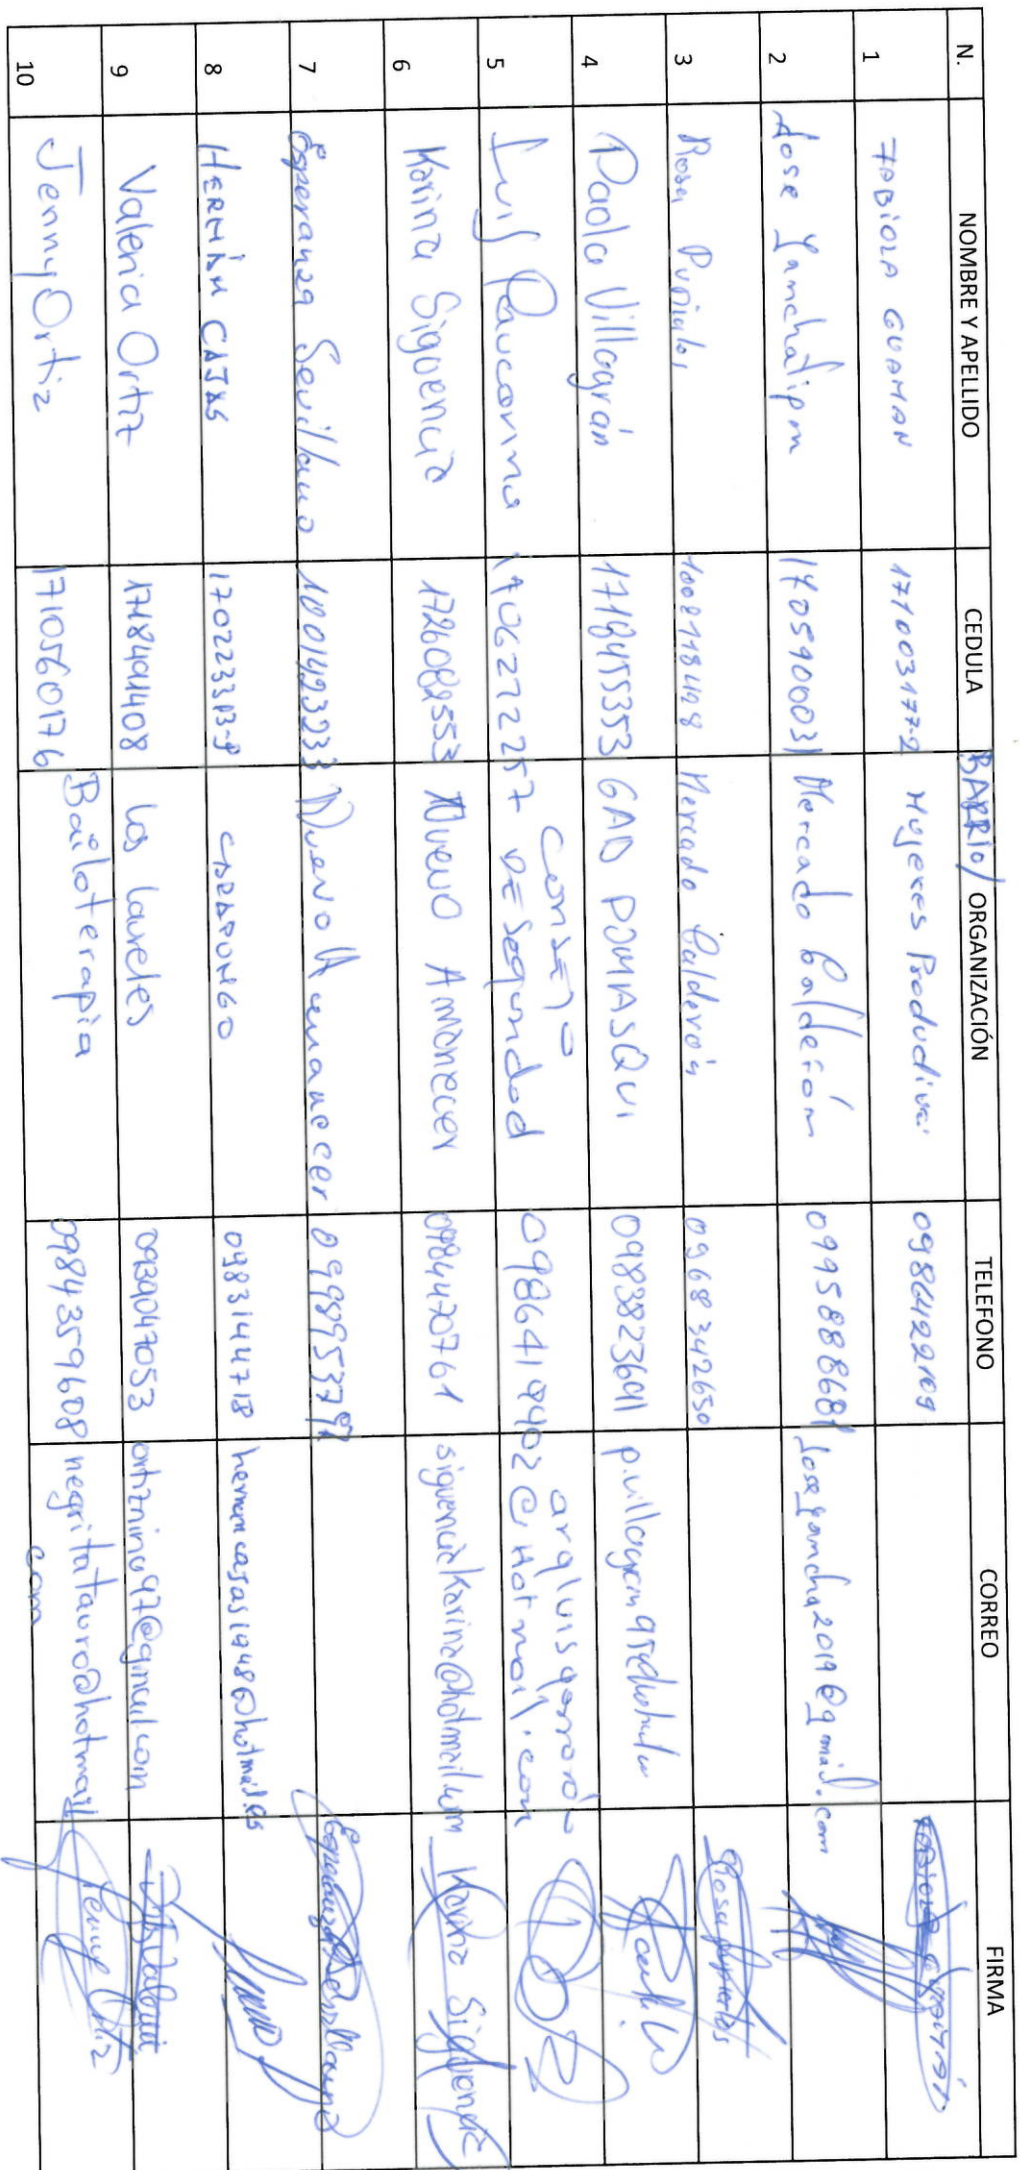 N. NOMBRE Y APELLIDO CEDULA BARRIO/ ORGANIZACIÓN TELEFONO CORREO FIRMA
1 FABIOLA GUAMAN 171003177-2 Mujeres Productivas 0986422109
2 Jose Yanchatipan 1705900031 Mercado Calderón 0995888681 joseyancha2019@gmail.com
3 Rosa 1002118498 Mercado Calderón 0968342650 Rosa
4 Paola Villagrán 1718455353 GAD POMASQUI 0983823691
5 Luis Paucarima 1706272257 Consejo DE Seguridad 0986419402 @Hotmail.com
6 Karina Siguencia 1726082553 Nuevo Amanecer 0984470761 siguenciakarina@hotmail.com Karina Siguencia
7 Esperanza Sevillano 1001423233 Nuevo Amanecer Esperanza Sevillano
8 HERNÁN CAJAS CARAPUNGO 0983144718 hernancajas1948@hotmail.es
9 Valeria Ortiz 1718491408 los laureles 0939047053 ortiznina97@gmail.com
10 Jenny Ortiz 1710560176 Bailoterapia 0984359608 negritatauro@hotmail. Jenny Ortiz
com